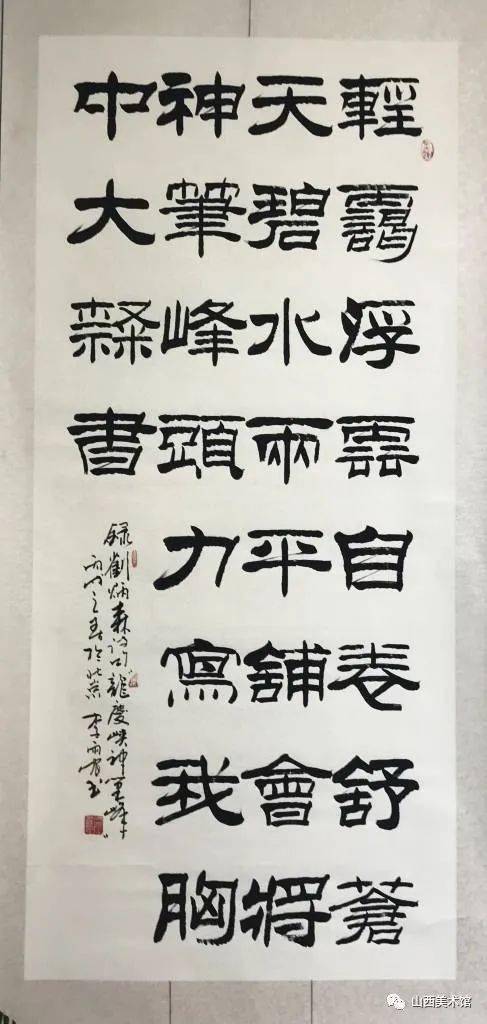 輕靄浮雲自卷舒蒼
天碧水兩平鋪會將
神筆峰頭力寫我胸
中大隸書
録劉炳森詩句龍慶峽神筆峰
之春於北京 李雨 書
山西美术馆